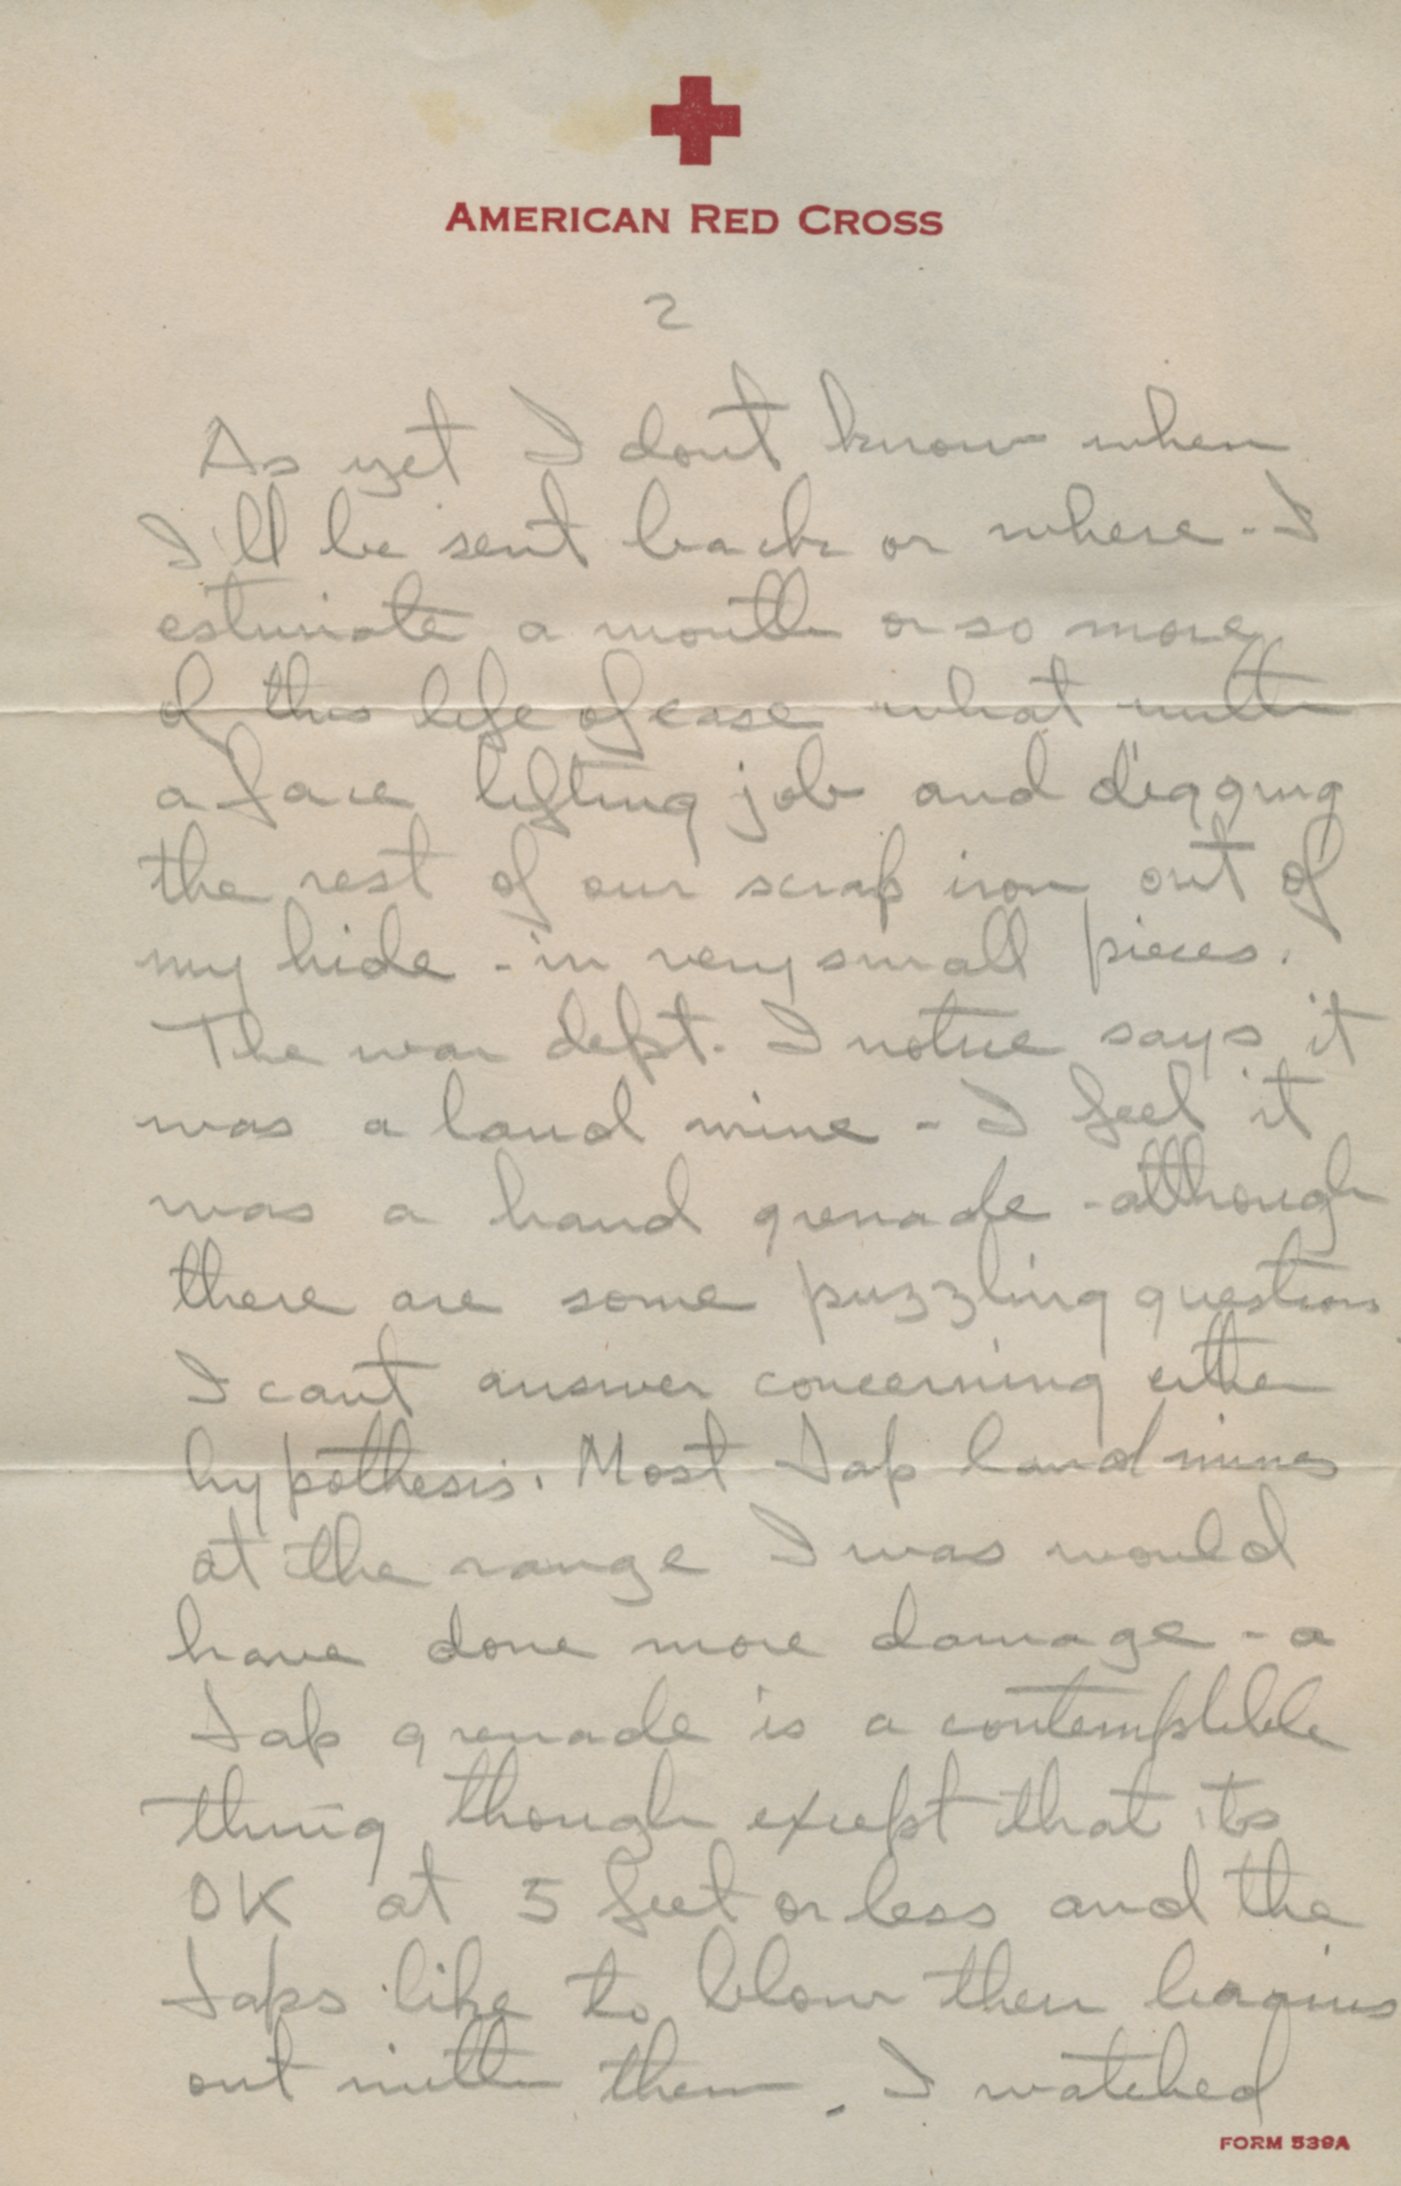 AMERICAN RED CROSS
2
As yet I dont know when
I'll be sent back or where - I
estimate a month or so more
of this life of ease what with
a face lifting job and digging
the rest of our scrap iron out of
my hide - in very small pieces.
The war dept. I notice says it
was a land mine - I feel it
was a hand grenade - although
there are some puzzling questions
I cant answer concerning either
hypothesis. Most Jap land mines
at the range I was would
have done more damage - a
Jap grenade is a contemptible
thing though except that its
OK at 5 feet or less and the
Japs like to blow their
out with them. I watched
FORM 539A